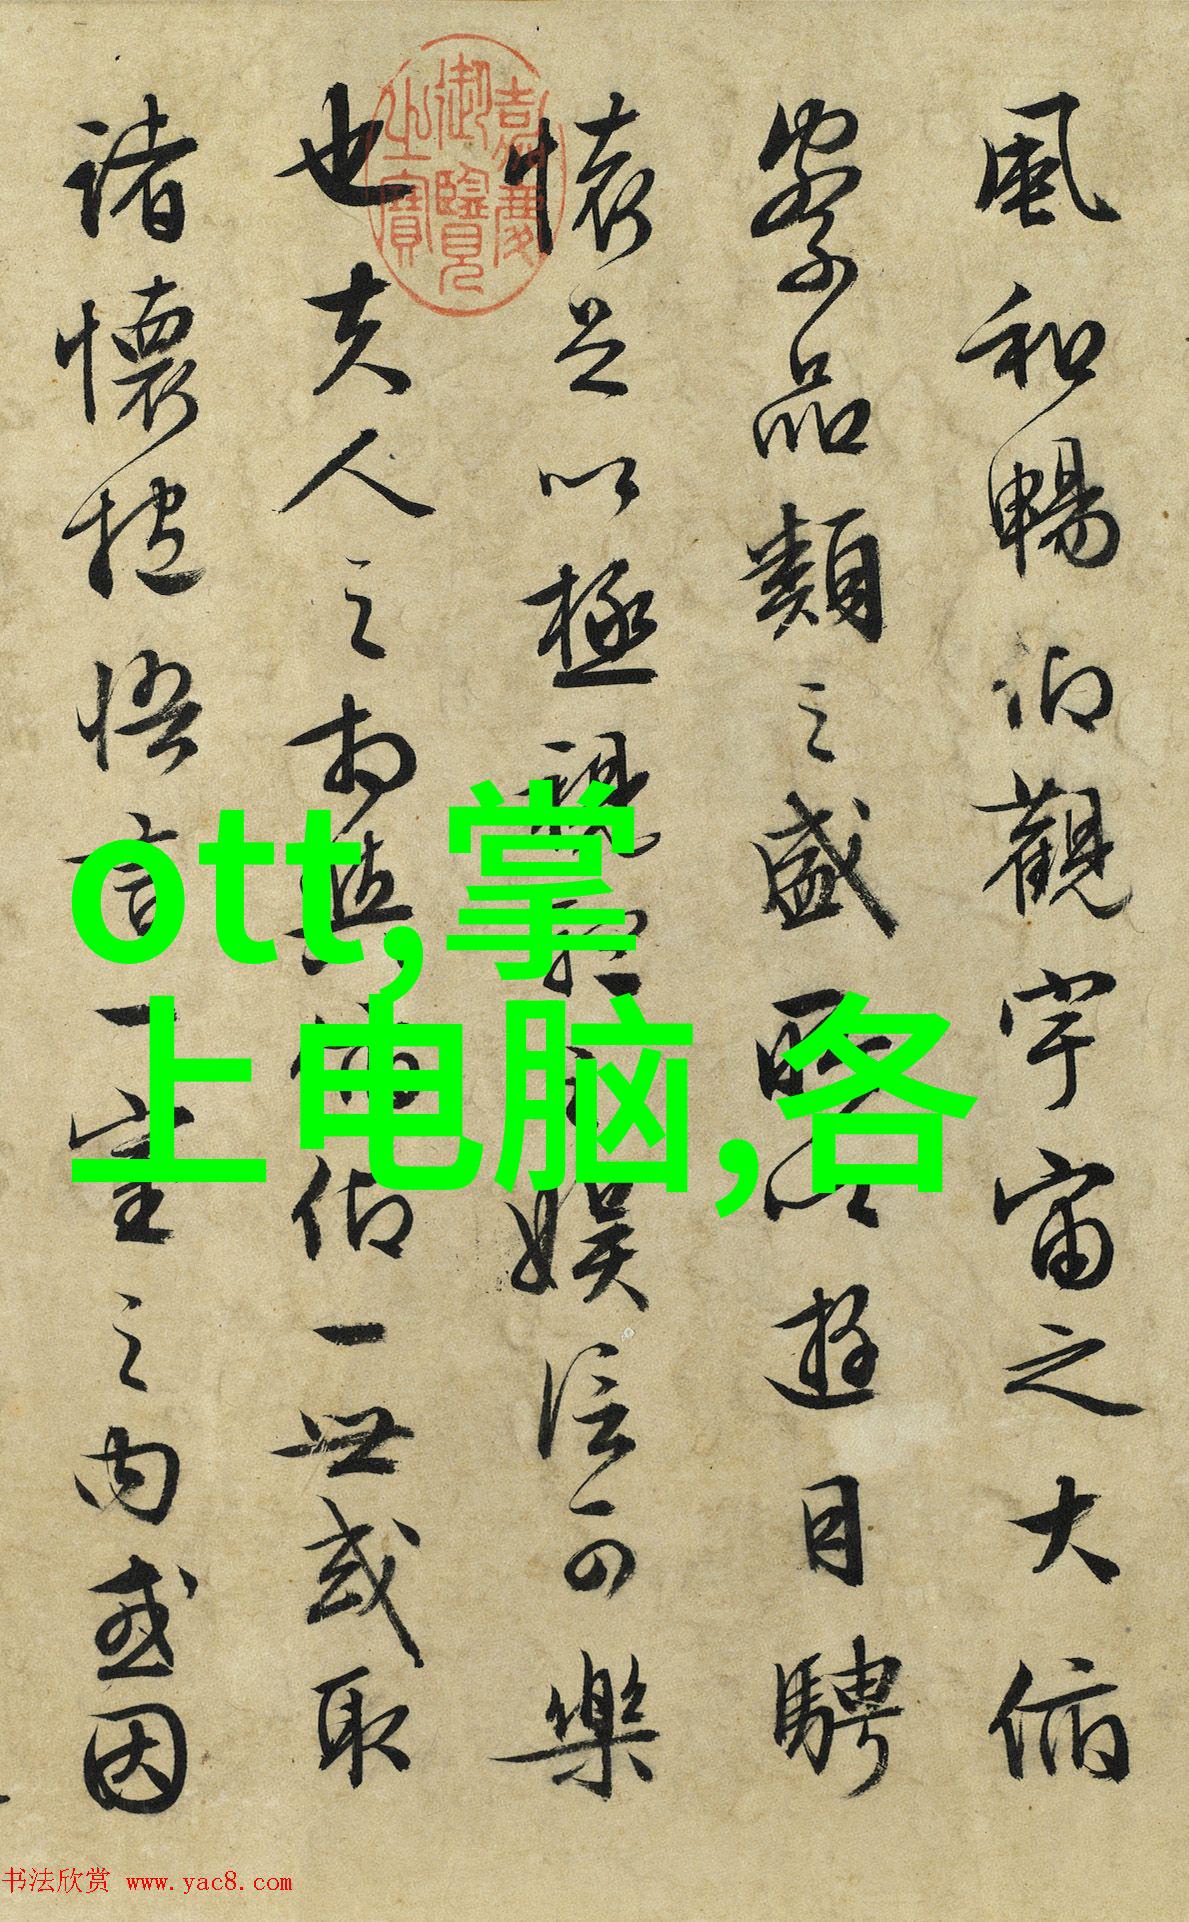 嘉慶
御覽
之寶
風和暢仰觀宇宙之大俯
察品類之盛所以遊目騁
懷足以極視聽之娛信可樂
也夫人之相與俯仰一世或取
諸懷抱悟言一室之内或因
ott,掌
上电脑,各
书法欣赏 www.yac8.com